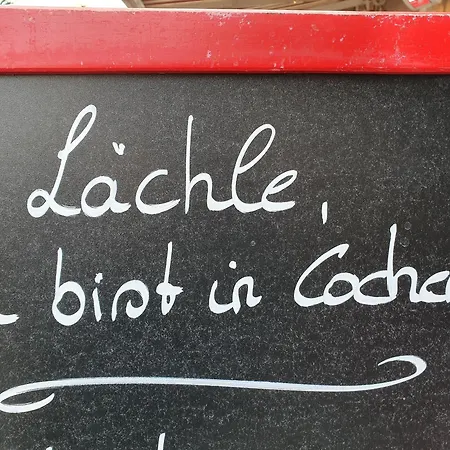 Lächle,
bist in Coche